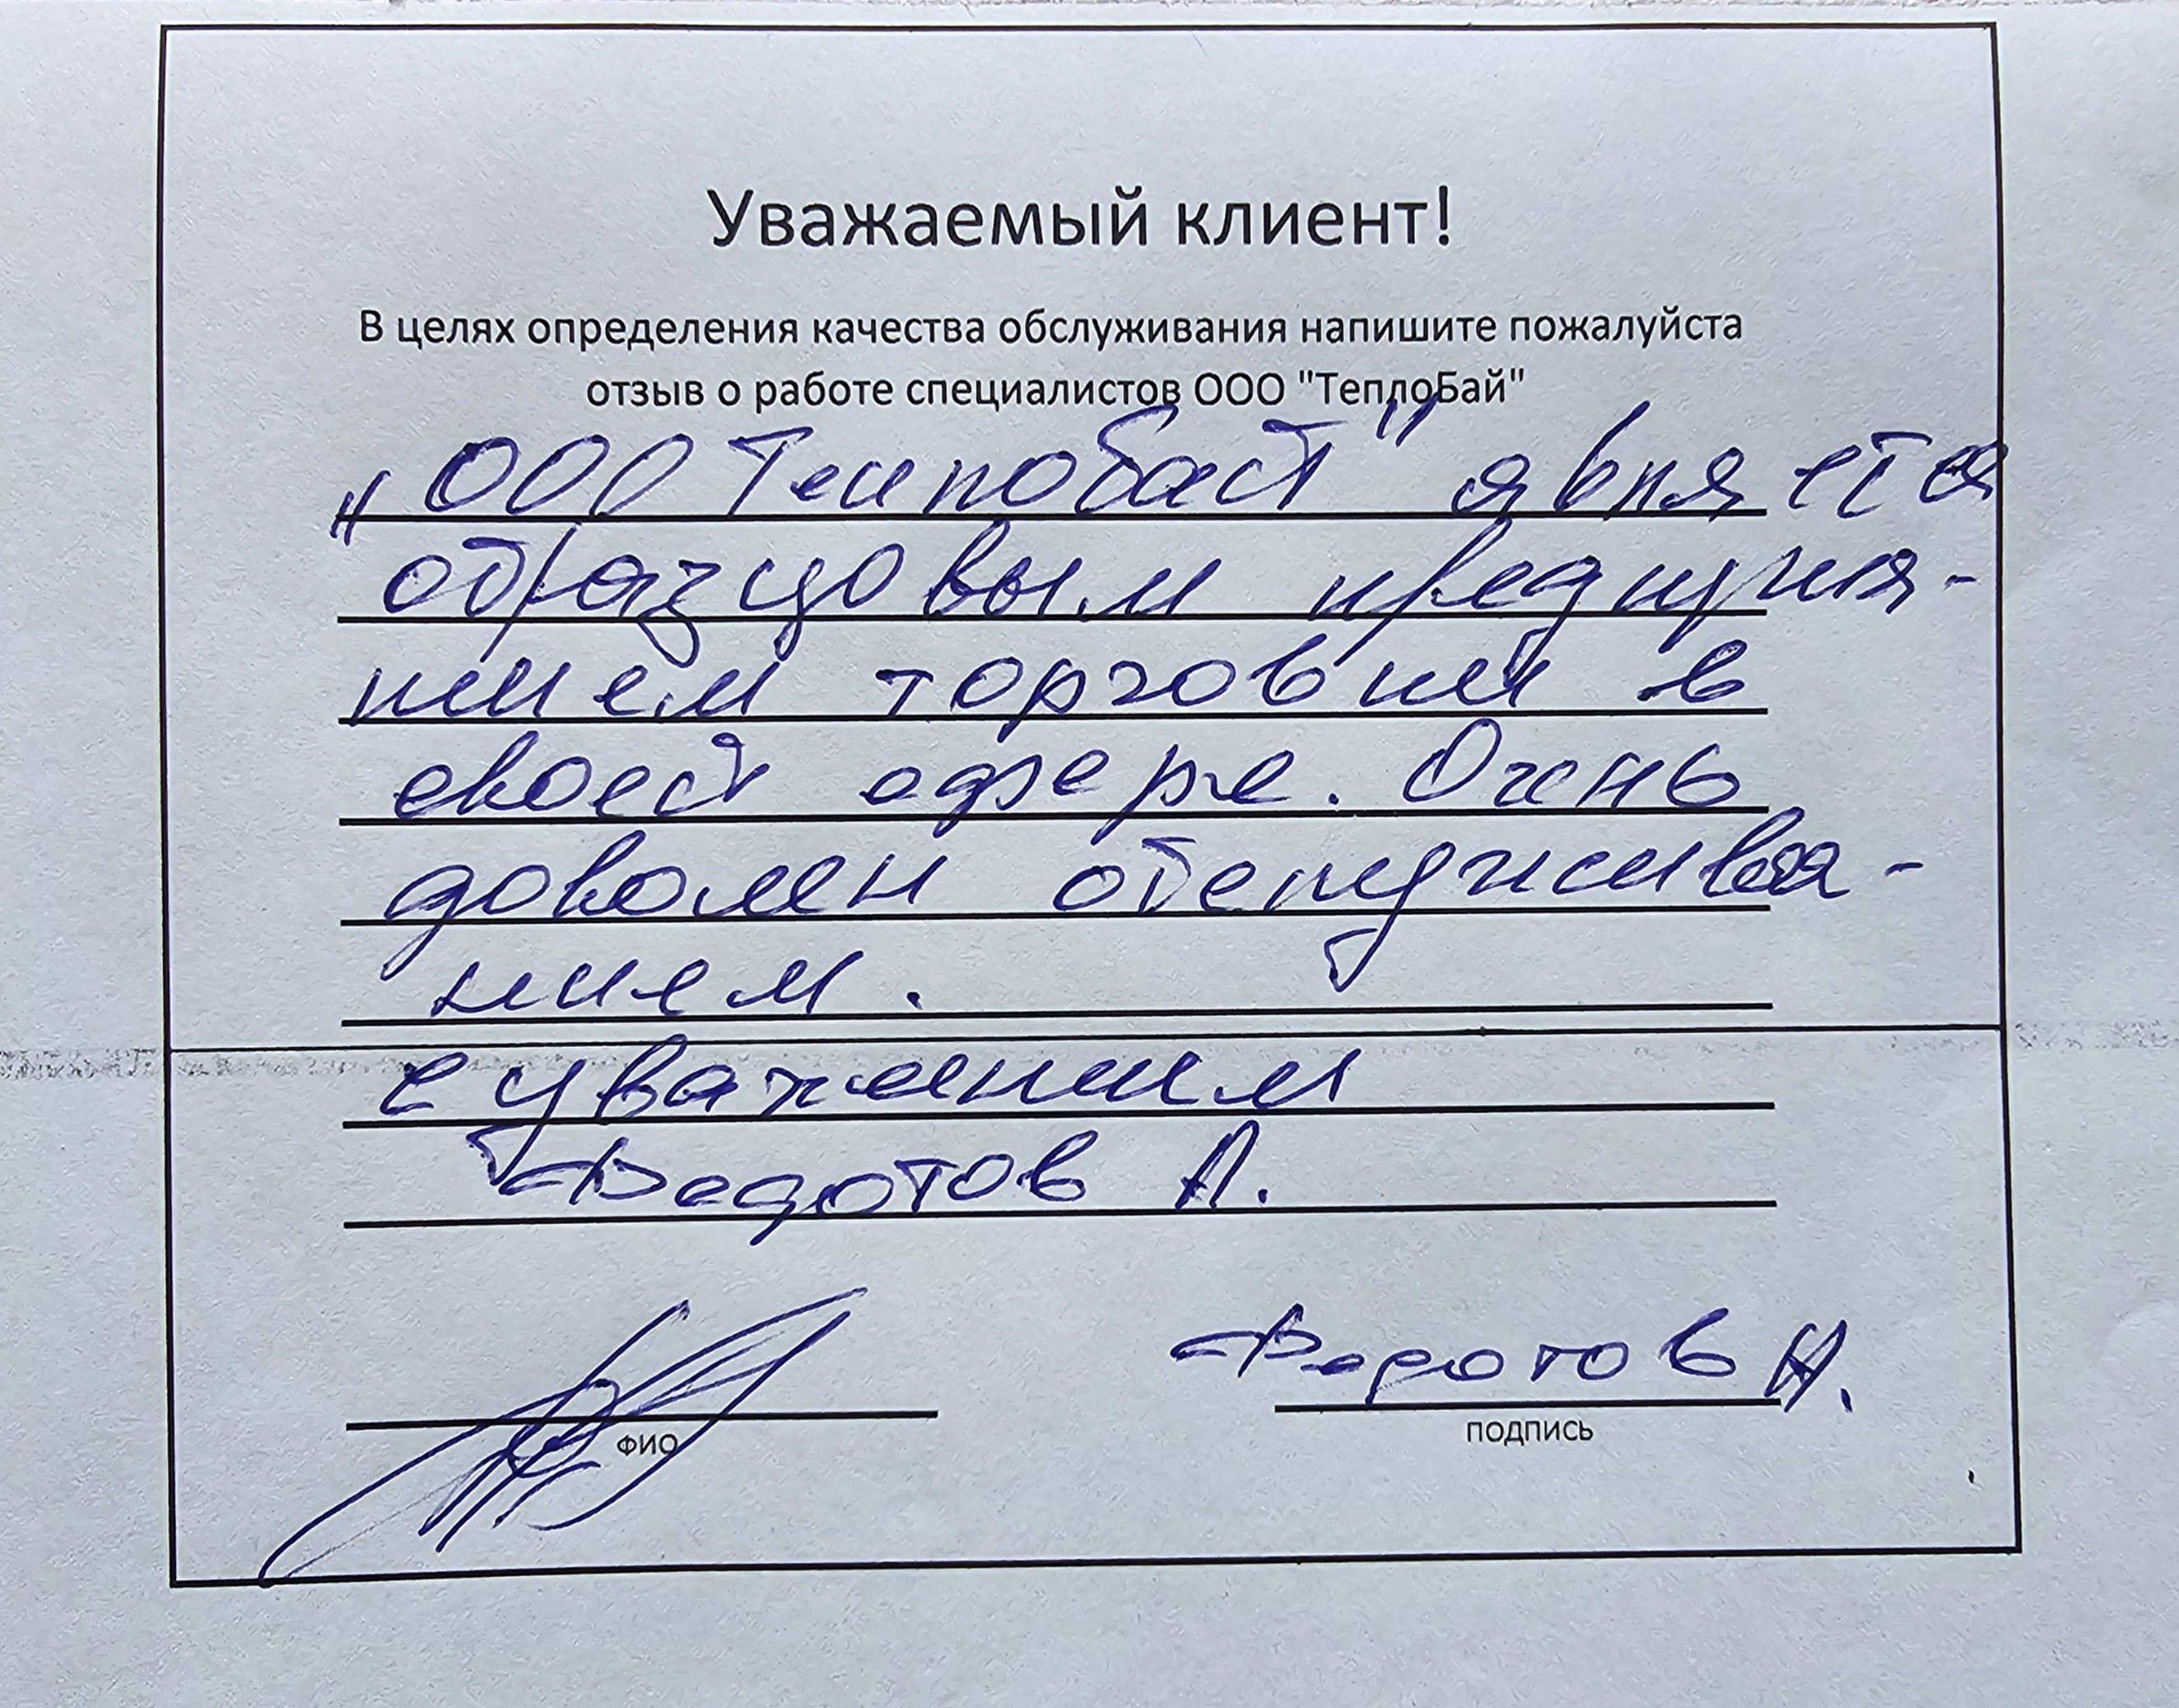 Уважаемый клиент!
В целях определения качества обслуживания напишите пожалуйста
отзыв о работе специалистов ООО "ТеплоБай"
„ООО Теплобай" является
образцовым предприя-
тием торговли в
своей сфере. Очень
доволен обслужива-
нием.
С уважением
Федотов А.
Федотов А.
ФИО
подпись